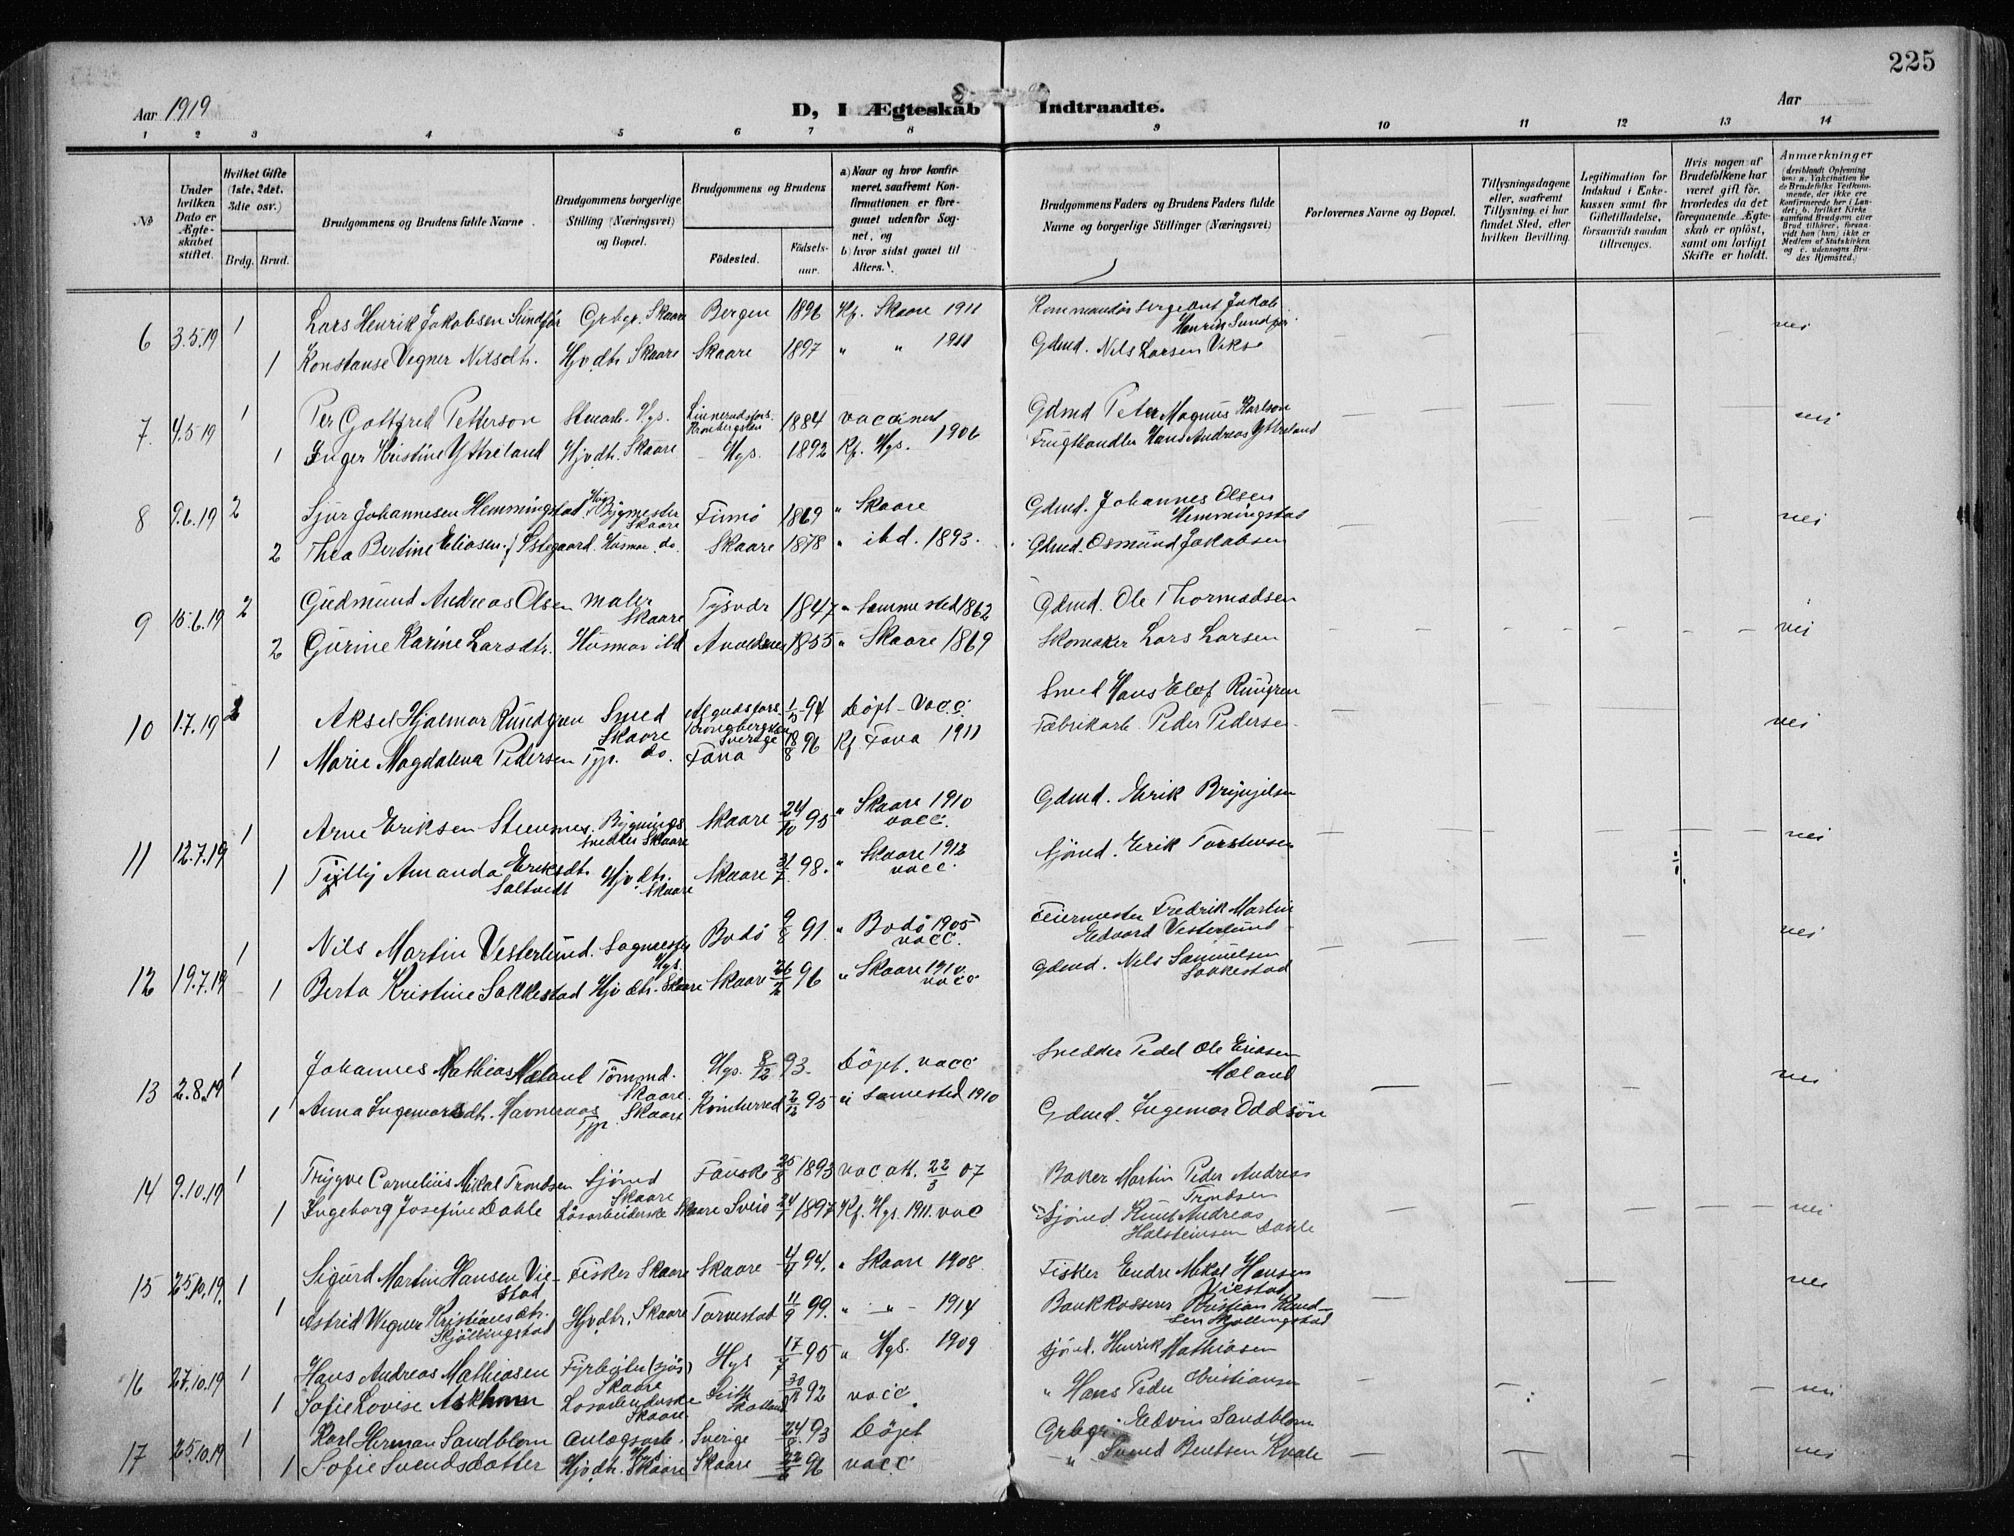 225
Aar 1919
D, I Ægteskab Indtraadte.
Aar
1 2 3 4 5 6 7 8 9 10 11 12 13 14
No
Under hvilken Dato er Ægteskabet stiftet.
Hvilket Gifte (1ste, 2det, 3die osv.)
Brdg. Brud.
Brudgommens og Brudens fulde Navne.
Brudgommens borgerlige Stilling (Næringsvei) og Bopæl.
Brudgommens og Brudens
Fødested.
Fødselsaar.
a) Naar og hvor konfirmeret, saafremt Konfirmationen er foregaaet udenfor Sognet, og
b) hvor sidst gaaet til Alters.
Brudgommens Faders og Brudens Faders fulde Navne og borgerlige Stillinger (Næringsvei)
Forlovernes Navne og Bopæl.
Tillysningsdagene eller, saafremt Tillysning ei har fundet Sted, efter hvilken Bevilling.
Legitimation for Indskud i Enkekassen samt for Giftetilladelse, forsaavidt saadan tiltrænges.
Hvis nogen af Brudefolkene har været gift før, hvorledes da det foregaaende Ægteskab er opløst, samt om lovligt Skifte er holdt.
Anmærkninger (deriblandt Oplysning om: a. Vakcination for de Brudefolks Vedkommende, der ikke ere konfirmerede her i Landet; b. hvilket Kirkesamfund Brudgom eller Brud tilhører, forsaavidt han (hun) ikke er Medlem af Statskirken og c. udensogns Brudes Hjemsted.)
6 3.5.19 1 Lars Henrik Jakobsen Sundfør Grbgr. Skaare Bergen 1896 Kf. Skaare 1911 Kommandørsergeant Jakob Henrik Sundfør nei
1 Konstanse Vegner Nilsdtr. Hjvdtr. Skaare Skaare 1897 " " 1911 Gdmd. Nils Larsen Vikse
7. 4.5.19 1 Per Gottfred Petterson Stenarb. Hgs. 1884 vaccinert Gdmd Peter Magnus Karlson nei
1 Inger Kristine Yttreland Hjvdtr. Skaare Hgs. 1892 Kf. Hgs. 1906 Frugthandler Hans Andreas Yttreland
8 9.6.19 2 Sjur Johannesen Hemmingstad Bygmester Skaare Finnø 1869 " Skaare Gdmd. Johannes Olsen Hemmingstad nei
2 Thea Bertine Eliasen f. Østegaard. Husmor. do. Skaare 1878 " ibd. 1893. Gdmd. Osmund Jakobsen
9 15.6.19 2 Gudmund Andreas Olsen maler Skaare Tysvær 1847 " sammested 1862 Gdmd. Ole Thormodsen nei
2 Gurine Karine Larsdtr. Husmor ibd Avaldsnes 1855 " Skaare 1869 Skomaker Lars Larsen
10 1.7.19 Aksel Hjalmar Rundgren Smed Skaare Sverige 94 Døpt - Vacc. Smed Hans Elof Rungren nei
1 Marie Magdalena Pedersen Tjp. do. Fana 18/8 96 Kf Fana 1911 Fabrikarb. Peder Pedersen
11 12.7.19 1 Arne Eriksen Steinnes. Bygningssnedker Skaare Skaare 24/10 95 " Skaare 1910 vacc. Gdmd. Erik Brynjelsen nei
1 Tylly Amanda Eriksdtr. Saltvedt Hjvdtr. Skaare Skaare 98. " Skaare 1912 vacc Sjømd. Erik Torstensen
12 19.7.19 1 Nils Martin Vesterlund. Sagmester Hgs. Bodø 9/8 91. " Bodø 1905 vacc. Feiermester Fredrik Martin Edvard Vesterlund nei
1 Berta Kristine Sakkestad Hjvdtr. Skaare Skaare 26/2 96 " Skaare 1910 vacc Gdmd. Nils Samuelsen Sakkestad
13 2.8.19 1 Johannes Mathias Mæland Tømmd. Skaare. Hgs. 8/12 93. Døpt. vacc Snedker Pedel Ole Eriksen Mæland nei
1 Anna Ingemarsdtr. Havneraas Tjp. Skaare Kvinherred 2/12 95 " Samested 1910 Gdmd. Ingemar Oddsøn
14 9.10.19 1 Trygve Cornelius Mikal Trondsen Sjømd Skaare Fauske 25/8 1893 vac att. 22/3 07 Baker Martin Peder Andreas Trondsen
1 Ingeborg Josefine Dahle Løsarbeiderske Skaare Sveio 24/7 1897 Kf. Hgs. 1911. vac Sjømd Knut Andreas Halsteinsen Dahle nei
15 25.10.19. 1 Sigurd Martin Hansen Viestad Fisker Skaare Skaare 94. " Skaare 1908. Fisker Endre Mikal Hansen Viestad nei
1 Astrid Wegner Kristiansdtr. Skjøllingstad Hjvdtr. Skaare Torvestad 11/9 99. " - " - 1914 Bankkasserer Kristian Skjøllingstad
16 27.10.19 1 Hans Andreas Mathiasen Fyrbøter (sjøs) Skaare Hgs 17/7 95 " Hgs. 1909 Sjømd. Henrik Mathiasen
1 Sofie Lovise Askham Løsarbeiderske Skaare. Leith Skotland 92 vacc. " Hans Peder Christiansen nei
17 25.10.19 1 Karl Herman Sandblom anlegsarb. Sverige 24/8 93 Døpt Grbgr. Edvin Sandblom
1 Sofie Svendsdatter Hjvdtr. Skaare Skaare 96 vacc " Svend Bentsen Kvale nei